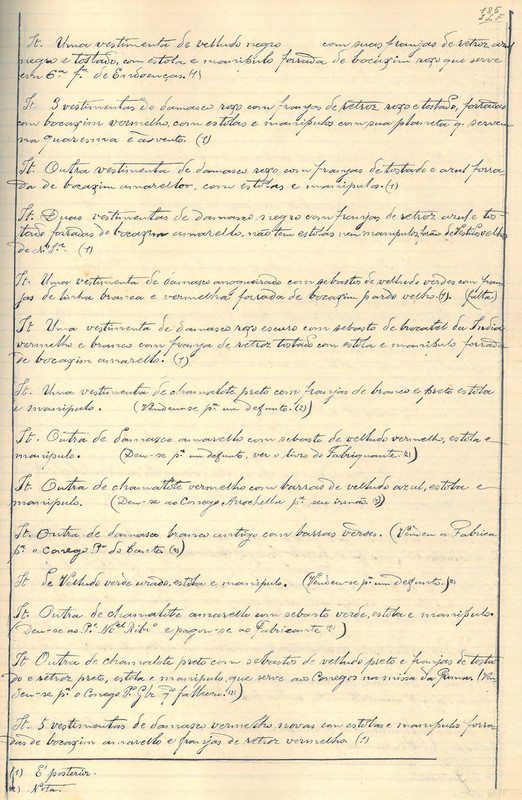 185
It. Uma vestimenta de velludo negro com suas franjas de retroz azul
negro e tostado, com estola e manipulo forrada de bocaxim roxo que serve
em 6ª fª de Endoenças. (1)
It. 3 vestimentas de damasco roxo com franjas de retroz roxo e tostado, forradas
com bocaxim vermelho, com estolas e manipulo com sua planeta q. servem
na quaresma e advento. (1)
It. Outra vestimenta de damasco roxo com franjas de tostado e azul forra
da de bocaxim amarello, com estolas e manipulos. (1)
It. Duas vestimentas de damasco negro com franjas de retroz azul e tos
tado forradas de bocaxim amarello, não tem estolas nem manipulos, forão de velho
de Nª Srª (1)
It. Uma vestimenta de damasco anogueirado com sebastos de velludo verdes com fran
jas de linha branca e vermelha forrada de bocaxim pardo velho. (1). (falta)
It. Uma vestimenta de damasco roxo escuro com sebasto de brocatel da India
vermelho e branco com franja de retroz tostado com estola e manipulo forrada
de bocaxim amarello. (1)
It. Uma vestimenta de chamalote preto com franjas de branco e preto estola
e manipulo. (Vendeu-se pª um defunto. (2))
It. Outra de Damasco amarello com sebasto de velludo vermelho, estola e
manipulo. (Deu-se pª um defunto, ver o livro do Fabriquante. (2))
It. Outra de chamalote vermelho com barras de velludo azul, estola e
manipulo. (Deu-se ao Conego Arrochella pª seu irmão (2))
It. Outra de damasco branco antigo com barras verdes. (Vendeu a Fabrica
pª o Conego Pº do Canto (2))
It de Velludo verde usado, estola e manipulo. (Vendeu-se pª um defunto.) (2)
It. Outra de chamalote amarello com sebasto verde, estola e manipulo.
(Deu-se ao Pe. Mel Ribº e pagou-se ao Fabricante (2))
It Outra de chamalote preto com sebastos de velludo preto e franjas de tosta
do e retroz preto, estola e manipulo, que serve aos Conegos na missa da Prima. (Ven
deu-se pª o Conego qº falleceu. (2))
It. 5 vestimentas de damasco vermelho novas com estolas e manipulo forra
das de bocaxim amarello e franjas de retroz vermelho. (1)
(1) É posterior.
(2) Nota.